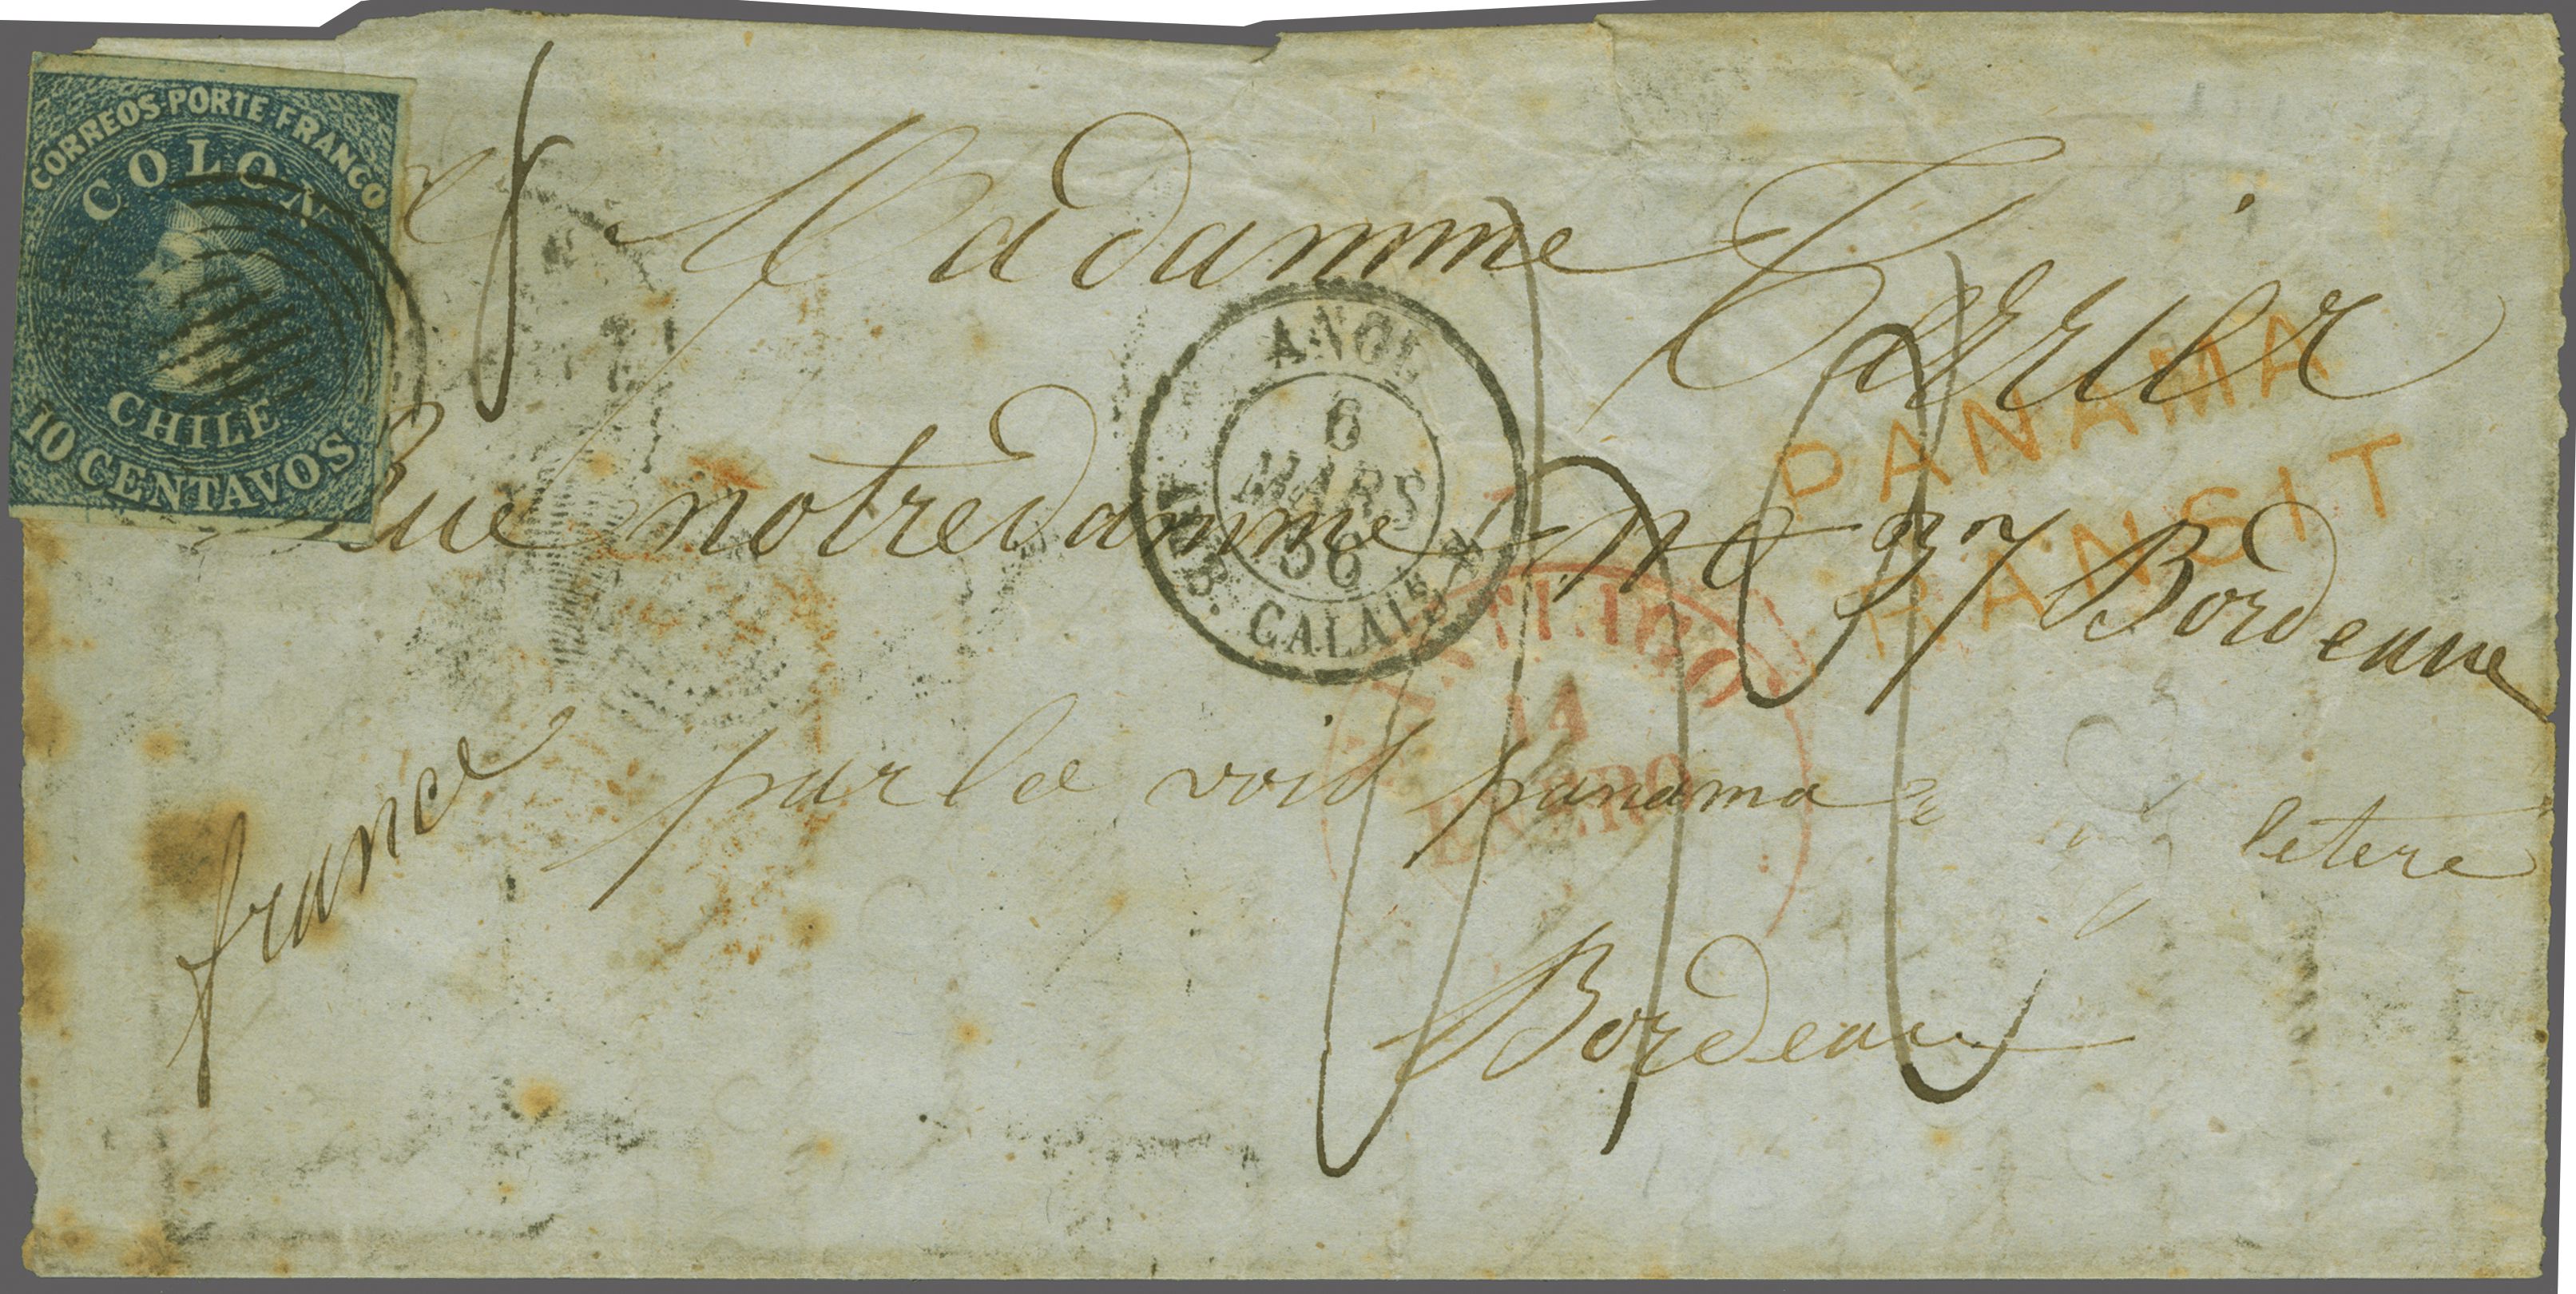 CORREOS PORTE FRANCO
COLON
CHILE
10 CENTAVOS
Madamme Terrier
ANGL.
6
MARS
56
CALAIS
PANAMA
TRANSIT
Rue notredamme no 37 Bordeaue
SANTIAGO
14
ENERO
france
par lee voit panama
letere
Bordeau